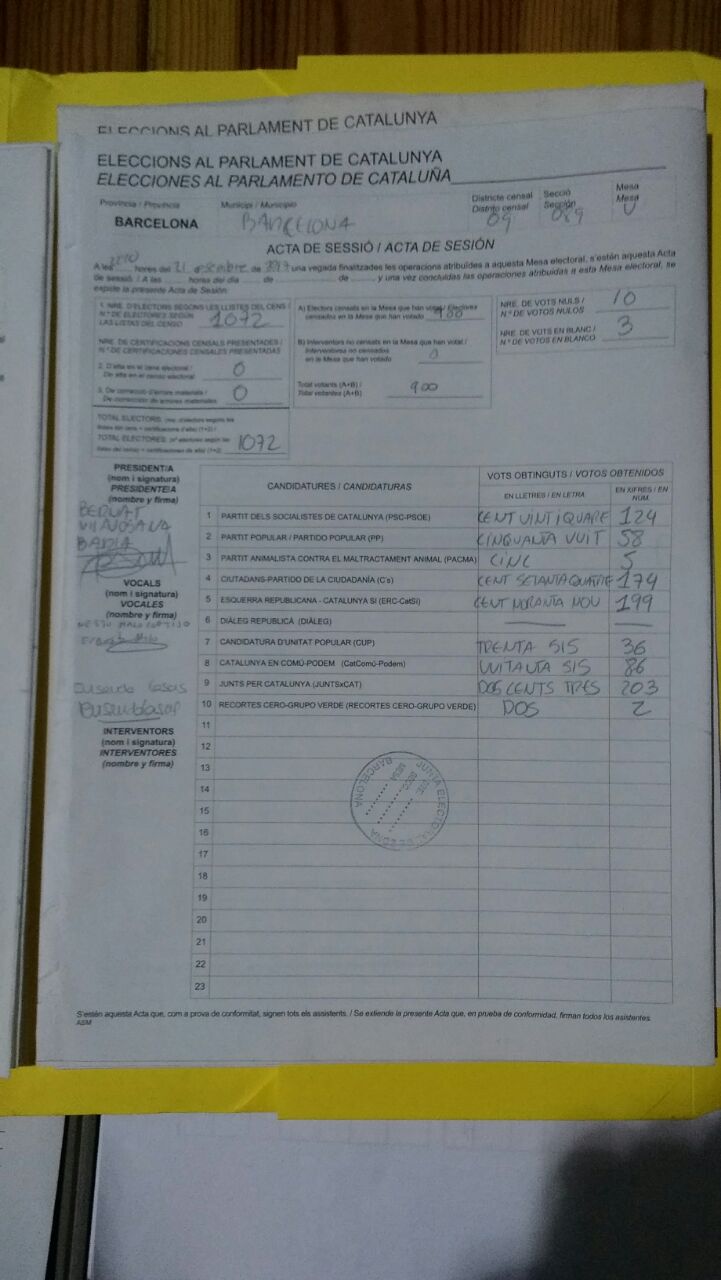 ELECCIONS AL PARLAMENT DE CATALUNYA
ELECCIONS AL PARLAMENT DE CATALUNYA
ELECCIONES AL PARLAMENTO DE CATALUÑA
Província / Provincia Municipi / Municipio Districte censal Secció Mesa
Distrito censal Sección Mesa
BARCELONA BARCELONA 09 089 U
ACTA DE SESSIÓ / ACTA DE SESIÓN
A les 20:10 hores del 21 desembre de 2017 una vegada finalitzades les operacions atribuïdes a aquesta Mesa electoral, s'estén aquesta Acta
de sessió. / A las ........ horas del día ........ de ........ de ........ y una vez concluidas las operaciones atribuidas a esta Mesa electoral, se
expide la presente Acta de Sesión:
1. NRE. D'ELECTORS SEGONS LES LLISTES DEL CENS /
N.º DE ELECTORES SEGÚN
LAS LISTAS DEL CENSO 1072
NRE. DE CERTIFICACIONS CENSALS PRESENTADES /
N.º DE CERTIFICACIONES CENSALES PRESENTADAS
2. D'alta en el cens electoral /
De alta en el censo electoral 0
3. De correcció d'errors materials /
De corrección de errores materiales 0
TOTAL ELECTORS
TOTAL ELECTORES 1072
A) Electors censats en la Mesa que han votat / Electores
censados en la Mesa que han votado 900
B) Interventors no censats en la Mesa que han votat /
Interventores no censados
en la Mesa que han votado 0
Total votants (A+B) /
Total votantes (A+B) 900
NRE. DE VOTS NULS /
N.º DE VOTOS NULOS 10
NRE. DE VOTS EN BLANC /
N.º DE VOTOS EN BLANCO 3
PRESIDENT/A
(nom i signatura)
PRESIDENTE/A
(nombre y firma)
BERNAT
VILANOSANA
BADIA
VOCALS
(nom i signatura)
VOCALES
(nombre y firma)
INTERVENTORS
(nom i signatura)
INTERVENTORES
(nombre y firma)
CANDIDATURES / CANDIDATURAS VOTS OBTINGUTS / VOTOS OBTENIDOS
EN LLETRES / EN LETRA EN XIFRES / EN NÚM.
1 PARTIT DELS SOCIALISTES DE CATALUNYA (PSC-PSOE) CENT VINT I QUATRE 124
2 PARTIT POPULAR / PARTIDO POPULAR (PP) CINQUANTA VUIT 58
3 PARTIT ANIMALISTA CONTRA EL MALTRACTAMENT ANIMAL (PACMA) CINC 5
4 CIUTADANS-PARTIDO DE LA CIUDADANÍA (C's) CENT SETANTA QUATRE 174
5 ESQUERRA REPUBLICANA - CATALUNYA SÍ (ERC-CatSí) CENT NORANTA NOU 199
6 DIÀLEG REPUBLICÀ (DIÀLEG)
7 CANDIDATURA D'UNITAT POPULAR (CUP) TRENTA SIS 36
8 CATALUNYA EN COMÚ-PODEM (CatComú-Podem) VUITANTA SIS 86
9 JUNTS PER CATALUNYA (JUNTSxCAT) DOS CENTS TRES 203
10 RECORTES CERO-GRUPO VERDE (RECORTES CERO-GRUPO VERDE) DOS 2
11
12
13
14
15
16
17
18
19
20
21
22
23
JUNTA ELECTORAL DE ZONA
BARCELONA
DTE
SECC
MESA
S'estén aquesta Acta que, com a prova de conformitat, signen tots els assistents. / Se extiende la presente Acta que, en prueba de conformidad, firman todos los asistentes.